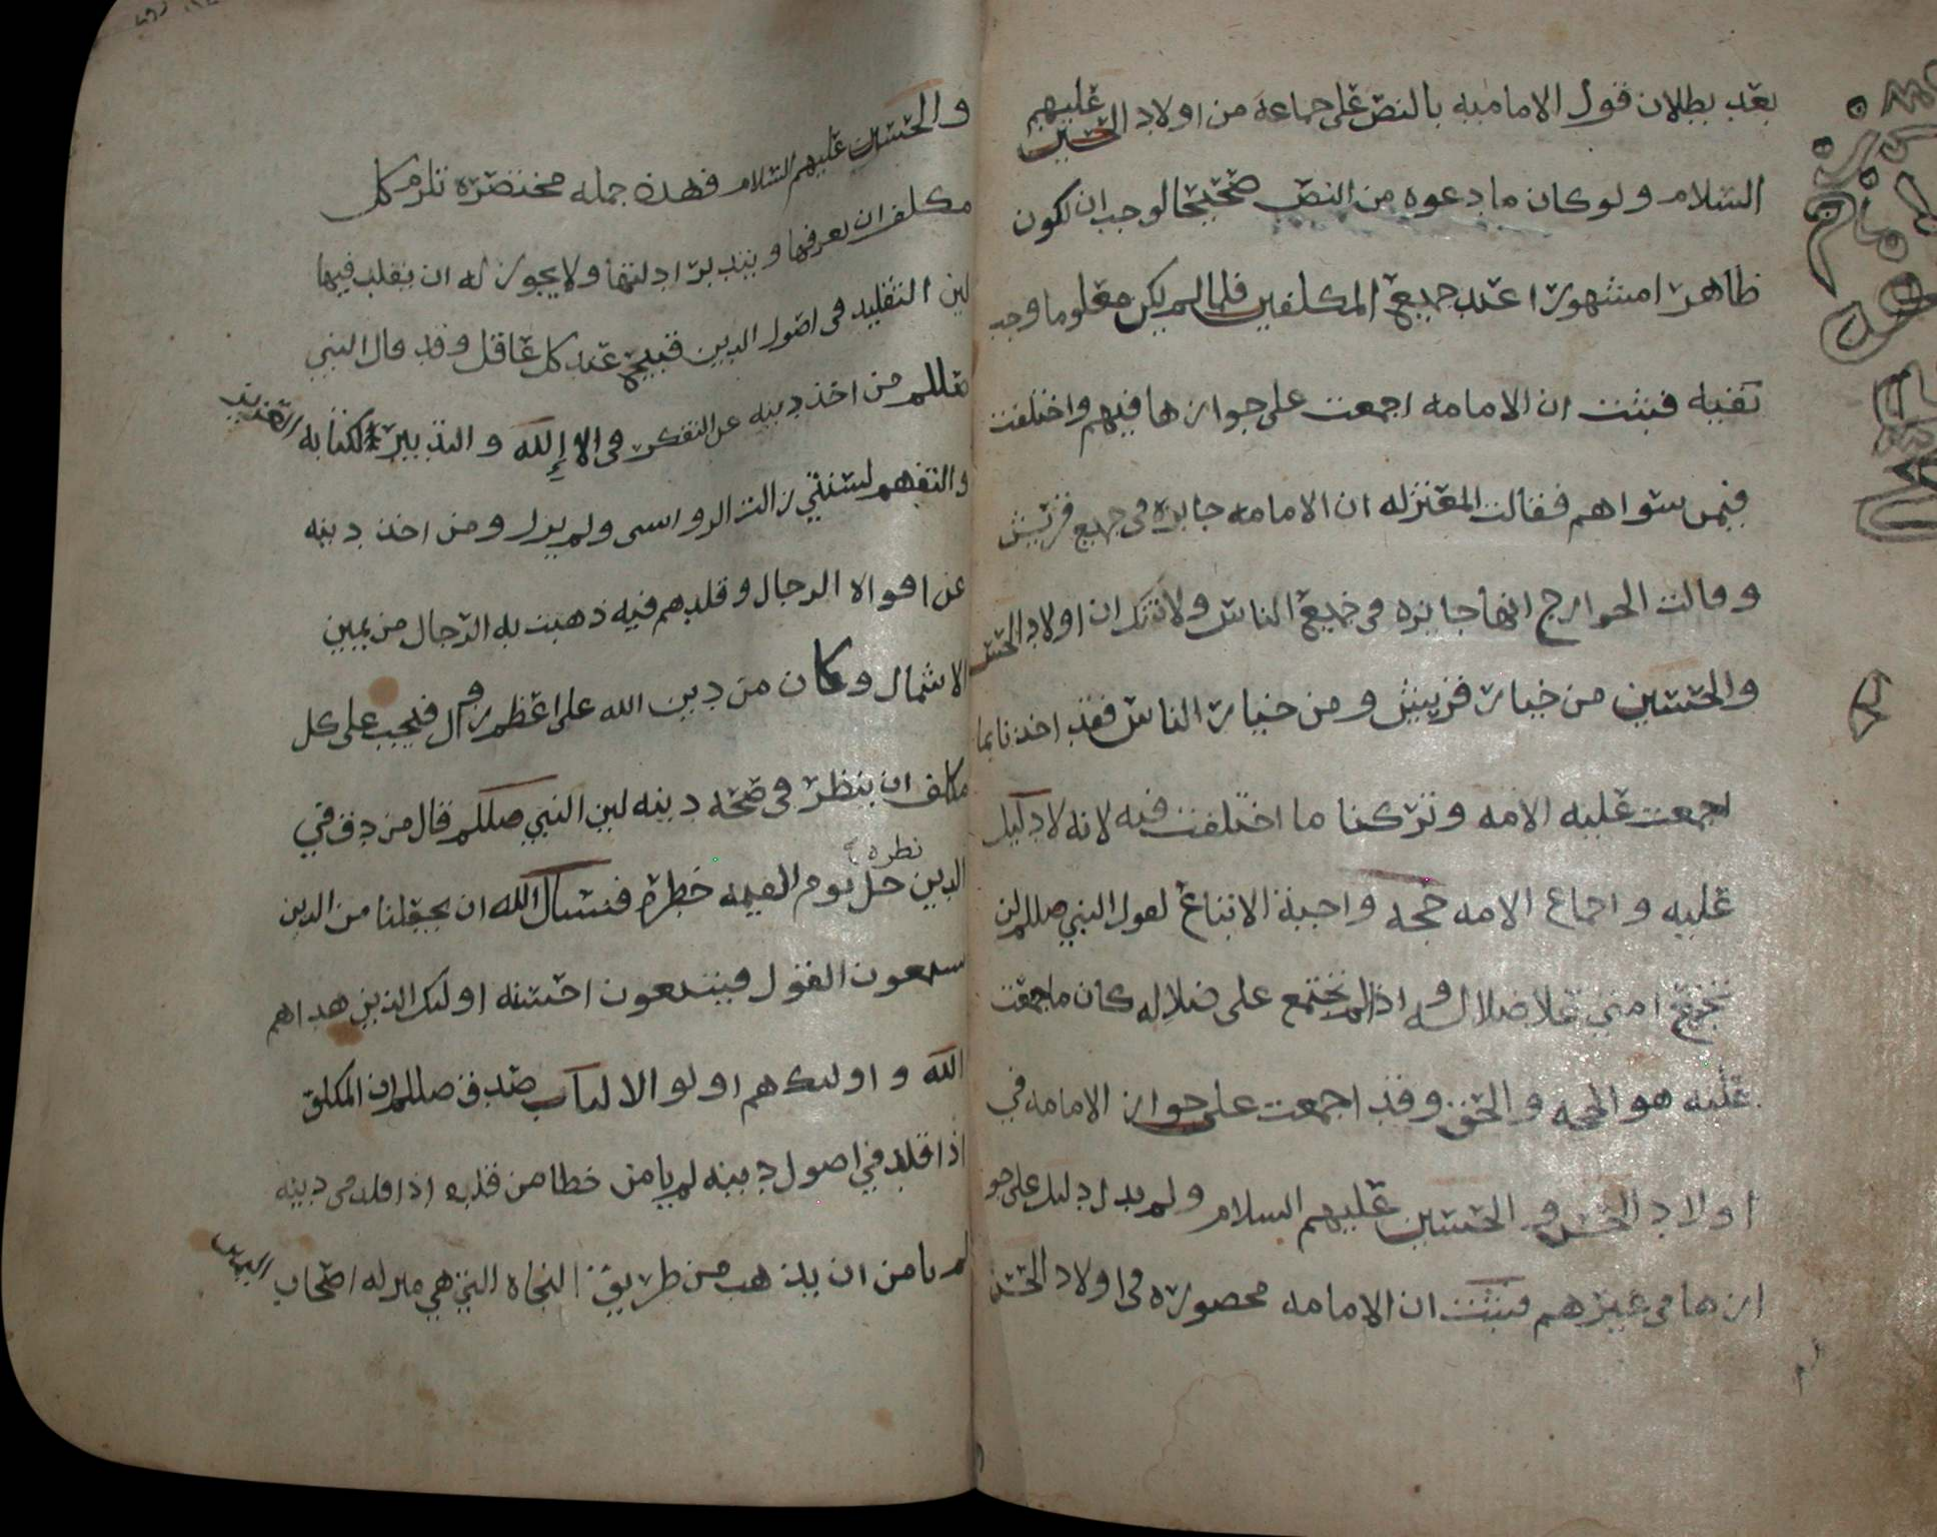 بعد بطلان قول الاماميه بالنص على جماعة من اولاد الحسين عليهم
السلام ولو كان ما دعوه من النص صحيحا لوجب ان تكون
ظاهرا مشهورا عند جميع المكلفين فلما لم يكن معلوما وجب
نفيه فثبت ان الامامه اجمعت على جوازها فيهم واختلفت
فيمن سواهم فقالت المعتزله ان الامامه جايزه في جميع قريش
وقالت الخوارج انها جايزه في جميع الناس ولا شك ان اولاد الحسن
والحسين من خيار قريش ومن خيار الناس فقد اخذنا بما
اجمعت عليه الامه وتركنا ما اختلفت فيه لانه لا دليل
عليه واجماع الامه حجه واجبة الاتباع لقول النبي صللم لن
تجتمع امتي علا ضلاله واذا لم تجتمع على ضلاله كان ما اجمعت
عليه هو الحجه والحق وقد اجمعت على جواز الامامه في
اولاد الحسن والحسين عليهم السلام ولم يدل دليل على جو
ازها في غيرهم فثبت ان الامامه محصوره في اولاد الحسن
والحسين عليهم السلام فهذه جمله مختصره تلزم كل
مكلف ان يعرفها ويتدبر ادلتها ولا يجوز له ان يقلد فيها
لين التقليد في اصول الدين قبيح عند كل عاقل وقد قال النبي
صللم من اخذ دينه عن التفكر في الا إلله والتدبير لكتابه
والتفهم لسنتي زالت الرواسى ولم يزل ومن اخذ دينه
عن افواه الرجال وقلدهم فيه ذهبت به الرجال من يمين
الا شمال وكان من دين الله على اعظم زوال فيجب على كل
مكلف ان ينظر في صحه دينه لين النبي صللم قال من دق في
الدين نظره حل يوم القيمه خطره فنسال الله ان يجعلنا من الدين
يستمعون القول فيتبعون احسنه اوليك الذين هداهم
الله واوليك هم اولو الالباب صدق صللم ان المكلف
اذا قلد في اصول دينه لم يامن خطا من قلده اذا قلد في دينه
لم يامن ان يذهب من طريق النجاه التي هي منزله اصحاب اليمين